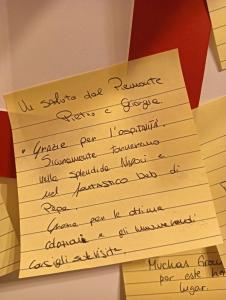 Un saluto dal Piemonte
Pietro e Giorgia
• Grazie per l'ospitalità.
Sicuramente torneremo
nella splendida Napoli e
nel fantastico B&B di
Pepe.
Grazie per le ottime
colazioni e gli innumerevoli
consigli
Muchas Grac
por este h
lugar.